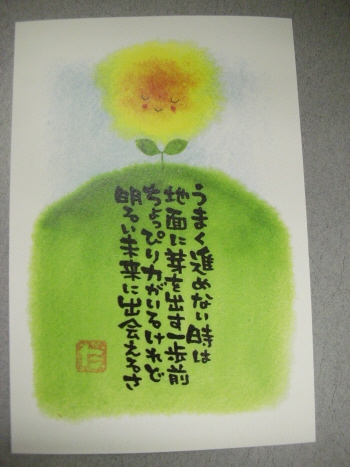 うまく進めない時は
地面に芽を出す一歩前
ちょっぴり力がいるけれど
明るい未来に出会えるさ